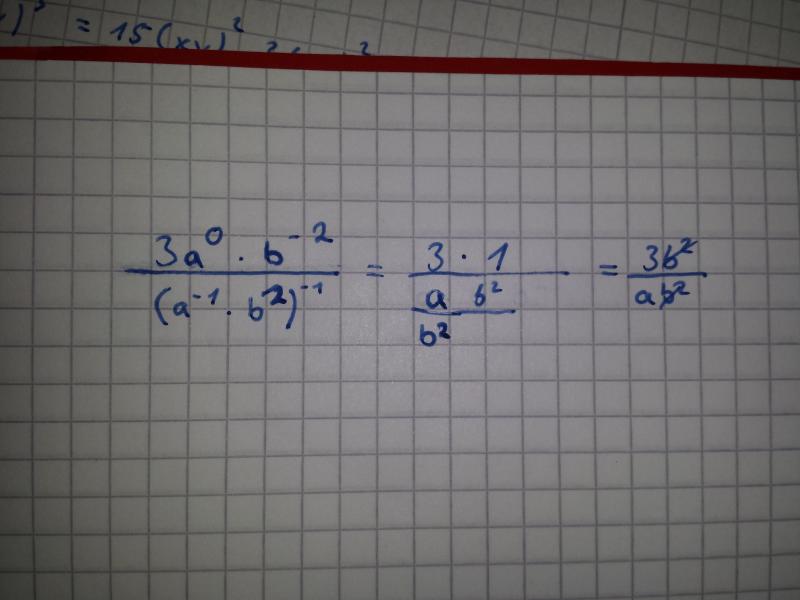 )³ = 15(xy)²
3a⁰ · b⁻² / (a⁻¹ · b²)⁻¹ = 3 · 1 / (a b² / b²) = 3b² / ab²